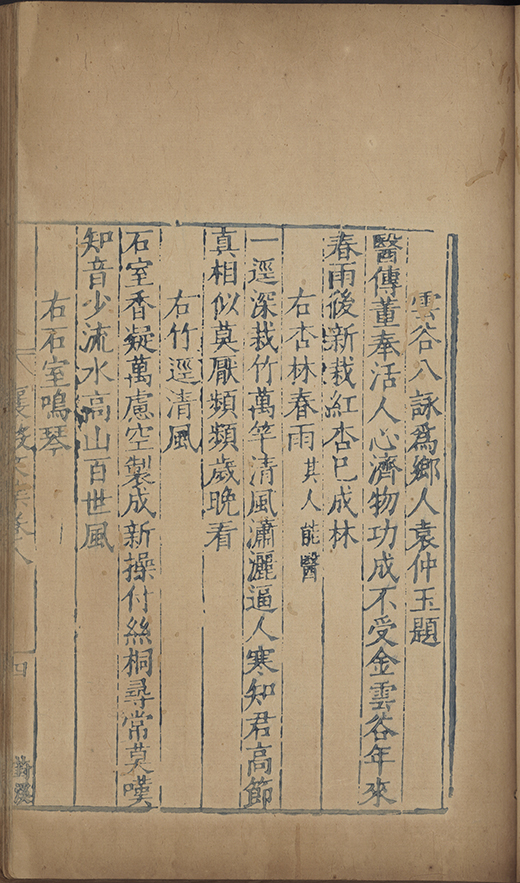 雲谷八詠爲鄉人袁仲玉題
醫傳董奉活人心濟物功成不受金雲谷年來
春雨後新栽紅杏已成林
右杏林春雨其人能醫
一逕深栽竹萬竿清風瀟灑逼人寒知君高節
真相似莫厭頻頻歲晚看
右竹逕清風
石室香凝萬慮空製成新操付絲桐尋常莫嘆
知音少流水高山百世風
右石室鳴琴
文集卷八
四